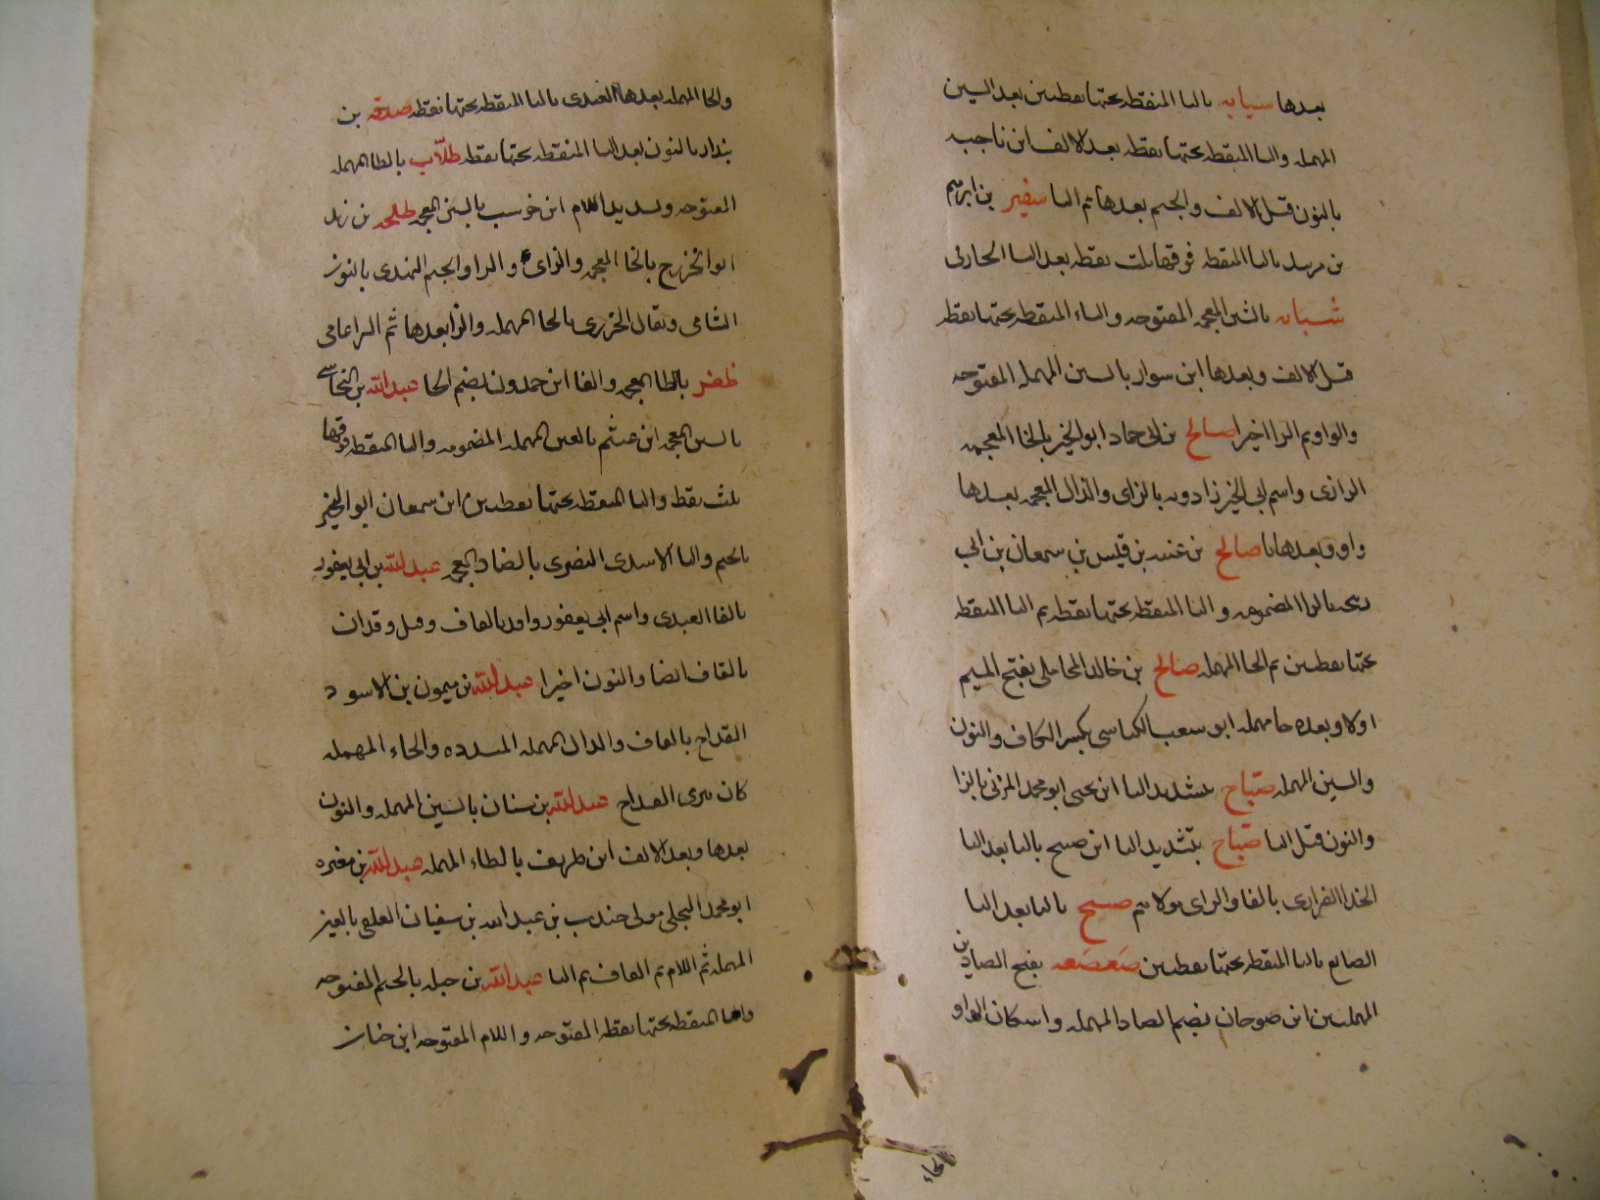 بعدها سيابه بالبا المنقطه تحتها نقطتين بعد السين
المهمله والبا المنقطه تحتها نقطه بعد الالف ابن ناجيه
بالنون قبل الالف والجيم بعدها ثم اليا سفير بن ابرهيم
بن مرثد بالبا المنقطه فوقها ثلث نقطه بعد الحارثى
شبابه بالشين المعجمه المفتوحه والباء المنقطه تحتها نقطه
قبل الالف وبعدها ابن سوار بالسين المهمله المفتوحه
والواو ثم الرا اخيرا صالح بن ابى حماد ابو الخير بالخا المعجمه
الرازى واسم ابى الخير زادويه بالزاى والذال المعجمه بعدها
واو وبعدها يا صالح بن عنبه بن قيس بن سمعان بن ابى
ربيحه بالرا المضمومه والبا المنقطه تحتها نقطه ثم اليا المنقطه
تحتها نقطتين ثم الحا المهمله صالح بن خالد المحاملى بفتح الميم
اولا وبعده حا مهمله ابو سعيب الكناسى بكسر الكاف والنون
والسين المهمله صباح بتشديد البا ابن يحيى ابو محمد المزنى بالزا
والنون قبل اليا صباح بتشديد البا ابن صبيح باليا بعد البا
الحذا الفزارى بالفا والزاى مولاهم صبيح باليا بعد البا
الصايع باليا المنقطه تحتها نقطتين صعصعه بفتح الصادين
المهملتين ابن صوحان بضم الصاد المهمله واسكان الواو
والحا المهمله بعدها العبدى بالبا المنقطه تحتها نقطه صدقه بن
بندار بالنون بعد البا المنقطه تحتها نقطه طلاب بالطا المهمله
المفتوحه وتشديد اللام ابن حوشب بالشين المعجمه طلحه بن زيد
ابو الخزرج بالخا المعجمه والزاى والرا والجيم النهدى بالنون
الشامى ويقال الخزرى بالحا المهمله والزا بعدها ثم الرا عامى
ظفر بالظا المعجمه والفا ابن حمدون بضم الحا عبد الله بن النجاشى
بالشين المعجمه ابن عثيم بالعين المهمله المضمومه والثا المنقطه فوقها
ثلث نقط واليا المنقطه تحتها نقطتين ابن سمعان ابو البجير
بالجيم واليا الاسدى النضرى بالضاد المعجمه عبد الله بن ابى يعفور
بالفا العبدى واسم ابى يعفور واقد بالقاف وقيل وقدان
بالقاف ايضا والنون اخيرا عبد الله بن ميمون بن الاسود
القداح بالقاف والدال المهمله المشدده والحاء المهمله
كان يبرى القداح عبد الله بن سنان بالسين المهمله والنون
بعدها وبعد الالف ابن طريف بالطاء المهمله عبد الله بن مغيره
ابو محمد البجلى مولى جندب بن عبد الله بن سفيان العلقى بالعين
المهمله ثم اللام ثم القاف ثم اليا عبد الله بن جبله بالجيم المفتوحه
والبا المنقطه تحتها نقطه المفتوحه واللام المفتوحه ابن حنان